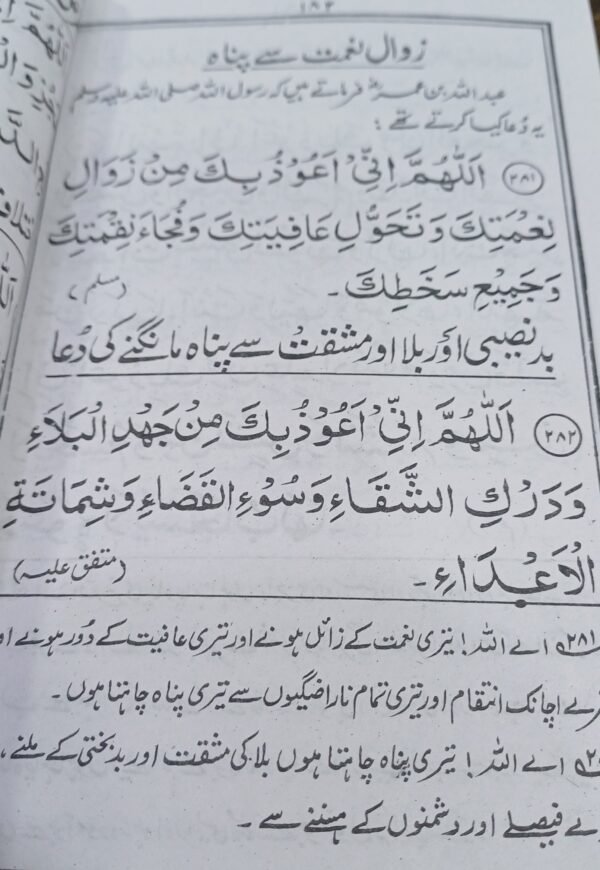 ۱۸۳
زوال نعمت سے پناہ
عبداللہ بن عمرؓ فرماتے ہیں کہ رسول اللہ صلی اللہ علیہ وسلم
یہ دُعا کیا کرتے تھے :
(۲۸۱) اَللّٰهُمَّ اِنِّيْ اَعُوْذُ بِكَ مِنْ زَوَالِ
نِعْمَتِكَ وَتَحَوُّلِ عَافِيَتِكَ وَفُجَاءَ نِقْمَتِكَ
وَجَمِيْعِ سَخَطِكَ ۔ (مسلم)
بدنصیبی اور بلا اور مشقت سے پناہ مانگنے کی دُعا
(۲۸۲) اَللّٰهُمَّ اِنِّيْ اَعُوْذُ بِكَ مِنْ جَهْدِ الْبَلَاءِ
وَدَرْكِ الشَّقَاءِ وَسُوْءِ الْقَضَاءِ وَشِمَاتَةِ
الْاَعْدَاءِ ۔ (متفق علیہ)
۲۸۱ اے اللہ ! تیری نعمت کے زائل ہونے اور تیری عافیت کے دُور ہونے
اچانک انتقام اور تیری تمام ناراضیگیوں سے تیری پناہ چاہتا ہوں ۔
اے اللہ ! تیری پناہ چاہتا ہوں بلا کی مشقت اور بدبختی کے ملنے ،
فیصلے اور دشمنوں کے ہنسنے سے ۔